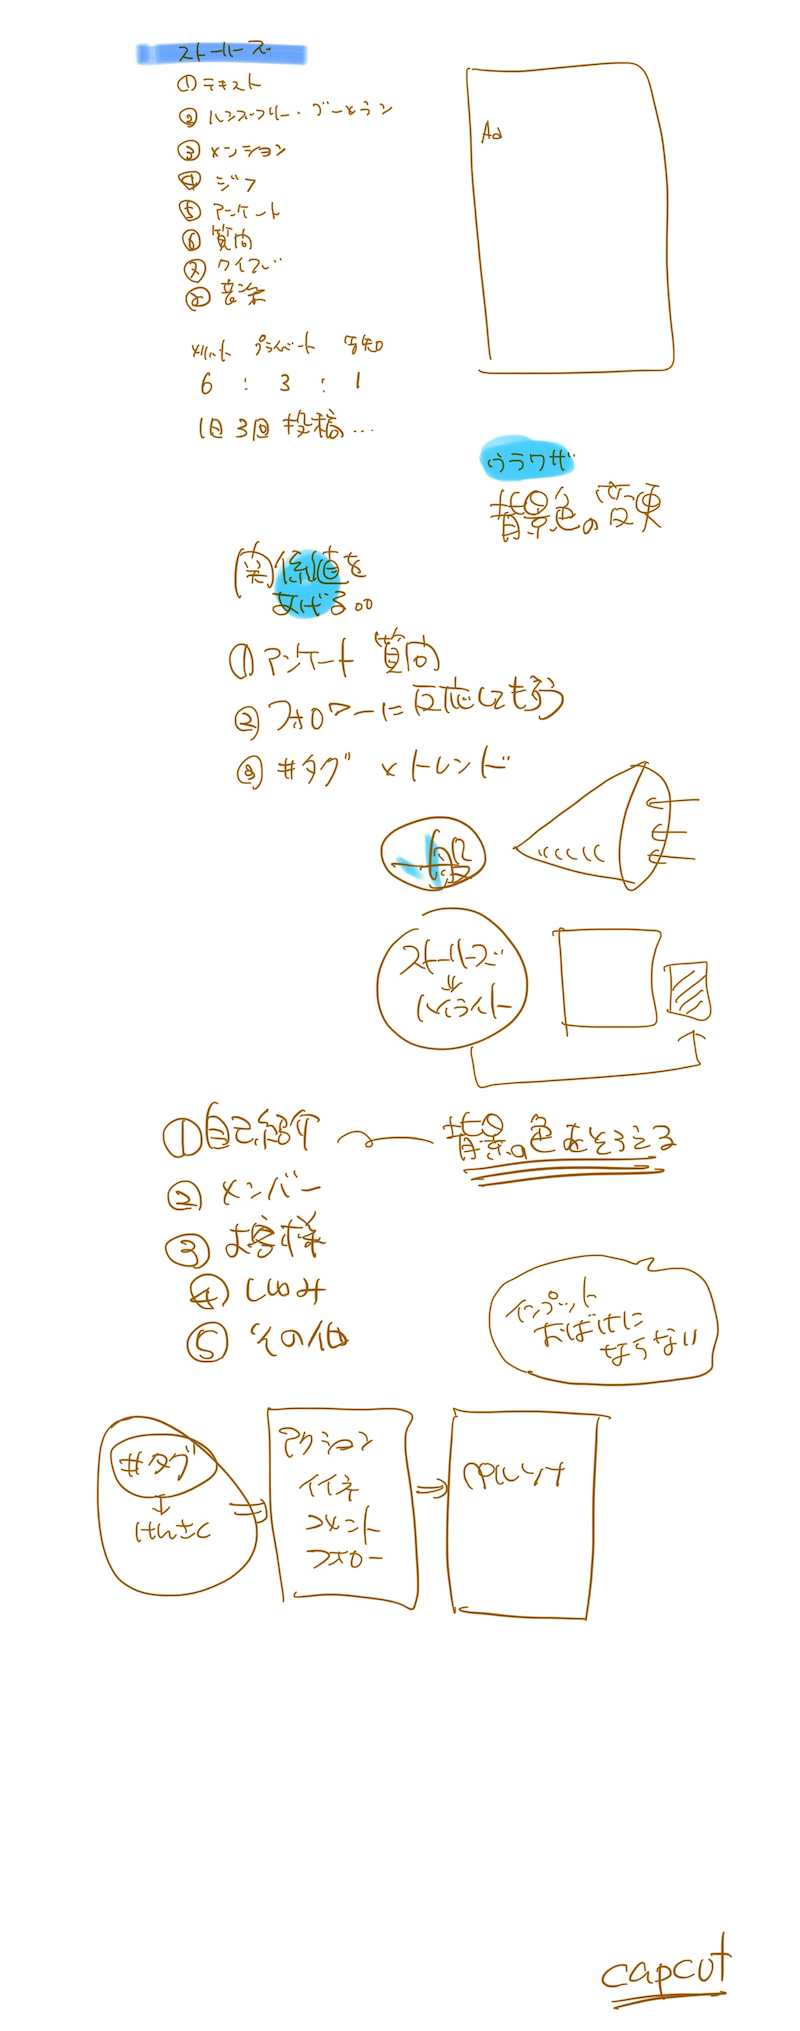 ストーリーズ
① テキスト
② ハンズフリー・ブーメラン
③ メンション
④ ジフ
⑤ アンケート
⑥ 質問
⑦ クイズ
⑧ 音楽
Aa
メリット プライベート 告知
6 : 3 : 1
1日3回 投稿…
ウラワザ
背景色の変更
関係値を
あげる。。
① アンケート 質問
② フォロワーに反応してもらう
③ #タグ × トレンド
一般
ストーリーズ
ハイライト
① 自己紹介
背景の色をそろえる
② メンバー
③ お客様
④ しくみ
⑤ その他
インプット
おばけに
ならない
#タグ
↓
けんさく
⇒
アクション
イイネ
コメント
フォロー
⇒
ペルソナ
capcut